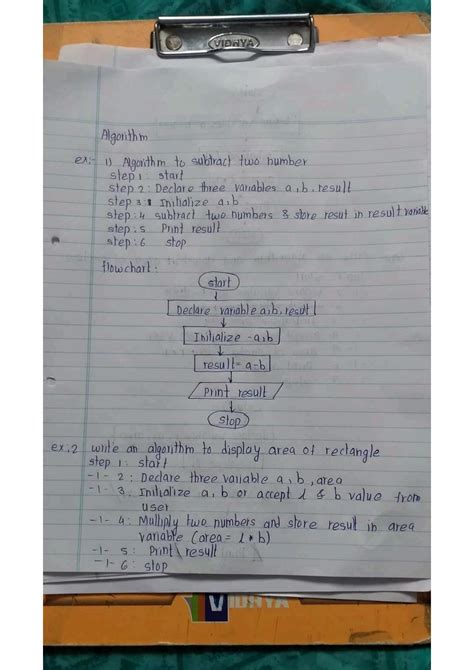 VIDHYA
Algorithm
ex:- 1) Algorithm to subtract two number
step 1: start
step 2: Declare three variables a,b, result
step 3: Initialize a,b
step: 4 subtract two numbers & store resut in result variable
step: 5 Print result
step: 6 stop
flowchart:
start
Declare variable a,b, result
Initialize -a,b
result= a-b
Print result
stop
ex.2 write an algorithm to display area of rectangle
step 1: start
-1- 2: Declare three variable a, b, area
-1- 3. Initialize a, b or accept l & b value from
user
-1- 4: Multiply two numbers and store result in area
variable (area = l * b)
-1- 5: Print result
-1- 6: stop
VIDHYA